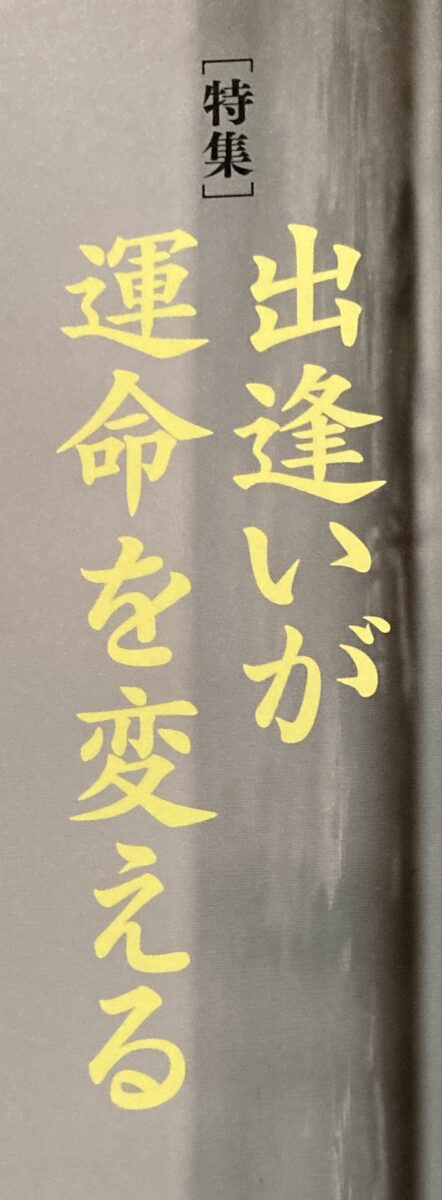 ［特集］
出逢いが
運命を変える